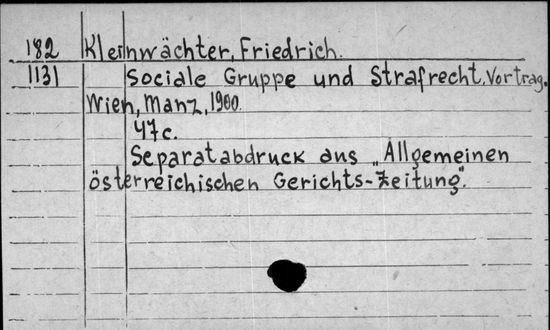 182 Kleinwächter, Friedrich.
1131 Sociale Gruppe und Strafrecht. Vortrag.
Wien, Manz, 1900.
47c.
Separatabdruck aus „Allgemeinen
österreichischen Gerichts-Zeitung".